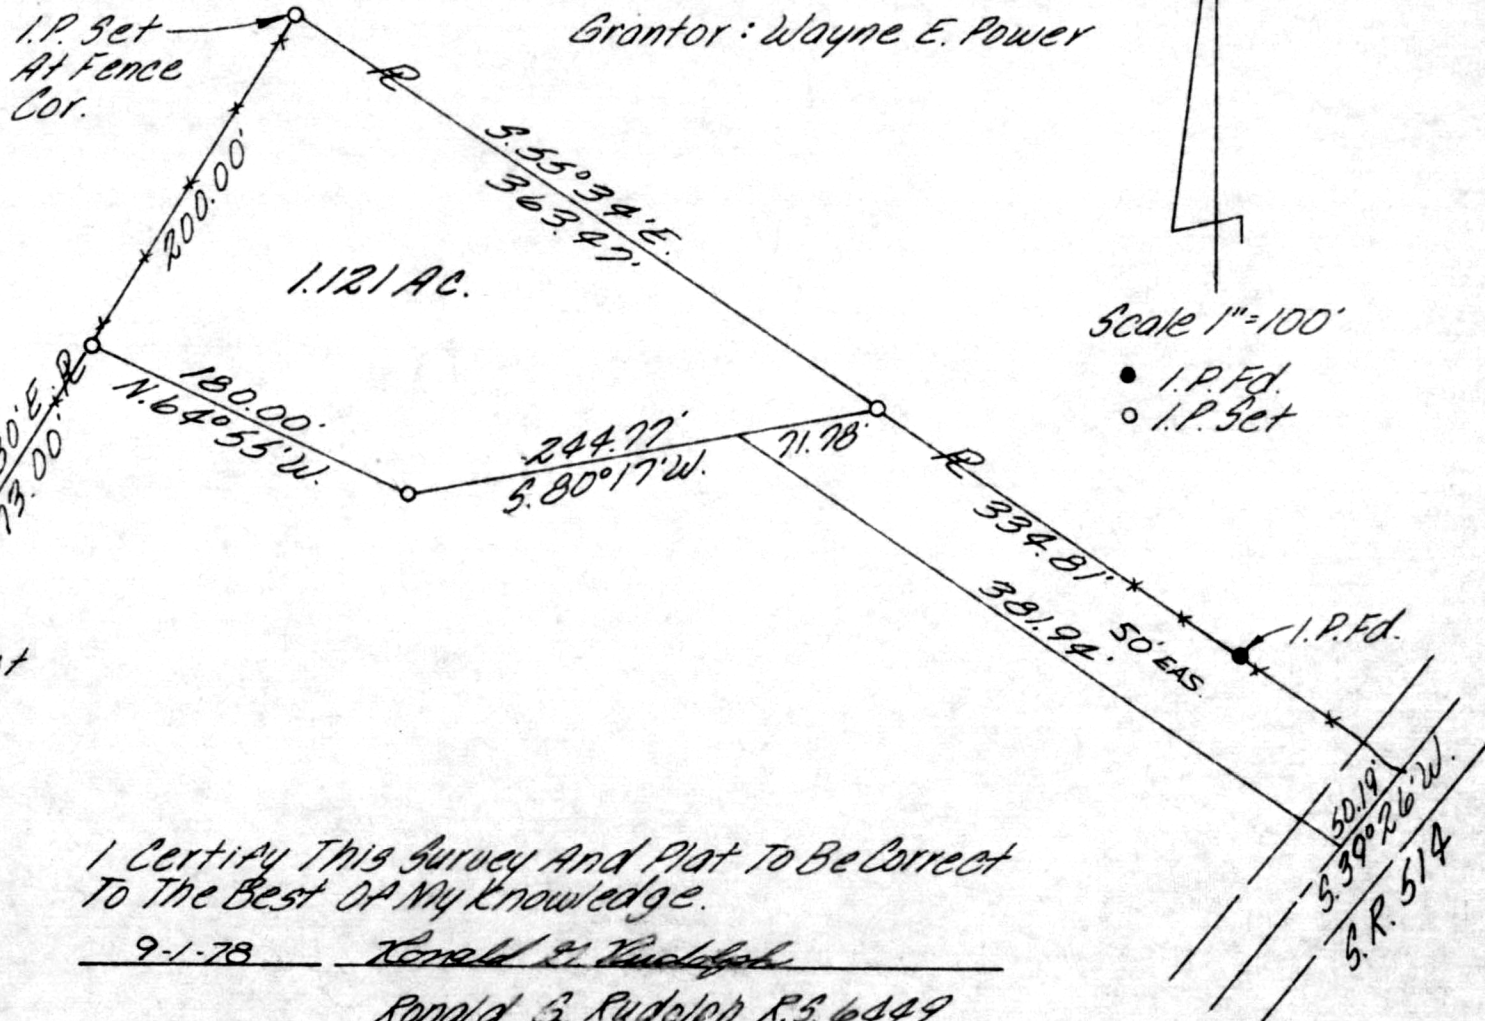 I.P. Set
At Fence
Cor.
Grantor : Wayne E. Power
℄
S. 55° 34' E.
363.47'
200.00'
1.121 Ac.
Scale 1"=100'
I.P. Fd.
I.P. Set
30' E.
73.00'
180.00'
N. 64° 55' W.
244.77'
S. 80° 17' W.
71.78'
334.81'
381.94'
50' EAS.
I.P. Fd.
50.19'
S. 39° 26' W.
S. R. 514
I Certify This Survey And Plat To Be Correct
To The Best Of My Knowledge.
9-1-78 Ronald G. Rudolph
Ronald G. Rudolph R.S. 6449